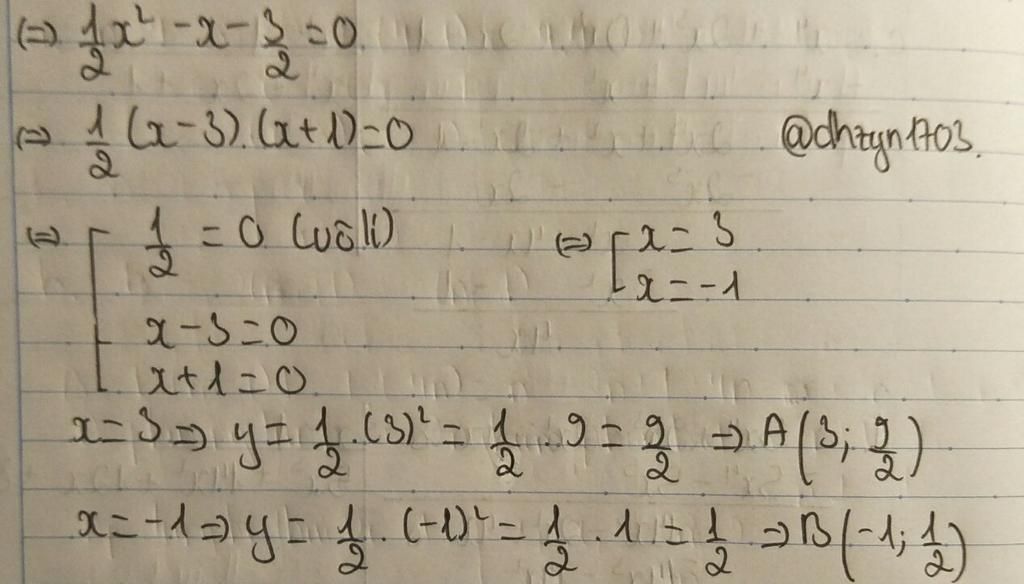 ⇔ 1/2 x² - x - 3/2 = 0
⇔ 1/2 (x-3).(x+1)=0 @dhzyn1703.
⇔ [ 1/2 = 0 (vô lí) ⇔ [ x = 3
x = -1
x-3=0
x+1=0
x=3 ⇒ y = 1/2 . (3)² = 1/2 . 9 = 9/2 ⇒ A(3; 9/2)
x=-1 ⇒ y = 1/2 . (-1)² = 1/2 . 1 = 1/2 ⇒ B(-1; 1/2)